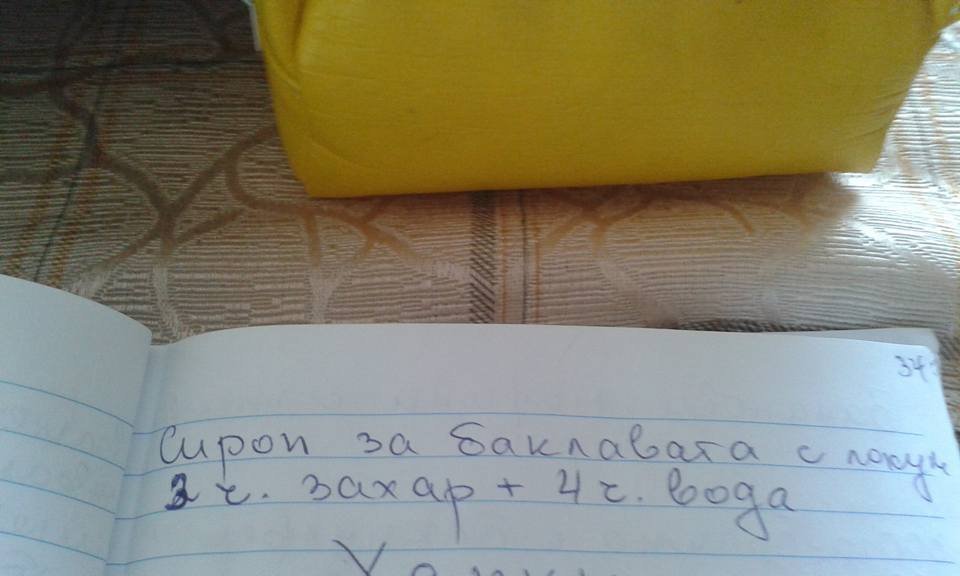 34
Сироп за баклавата с локум
2 ч. захар + 4 ч. вода